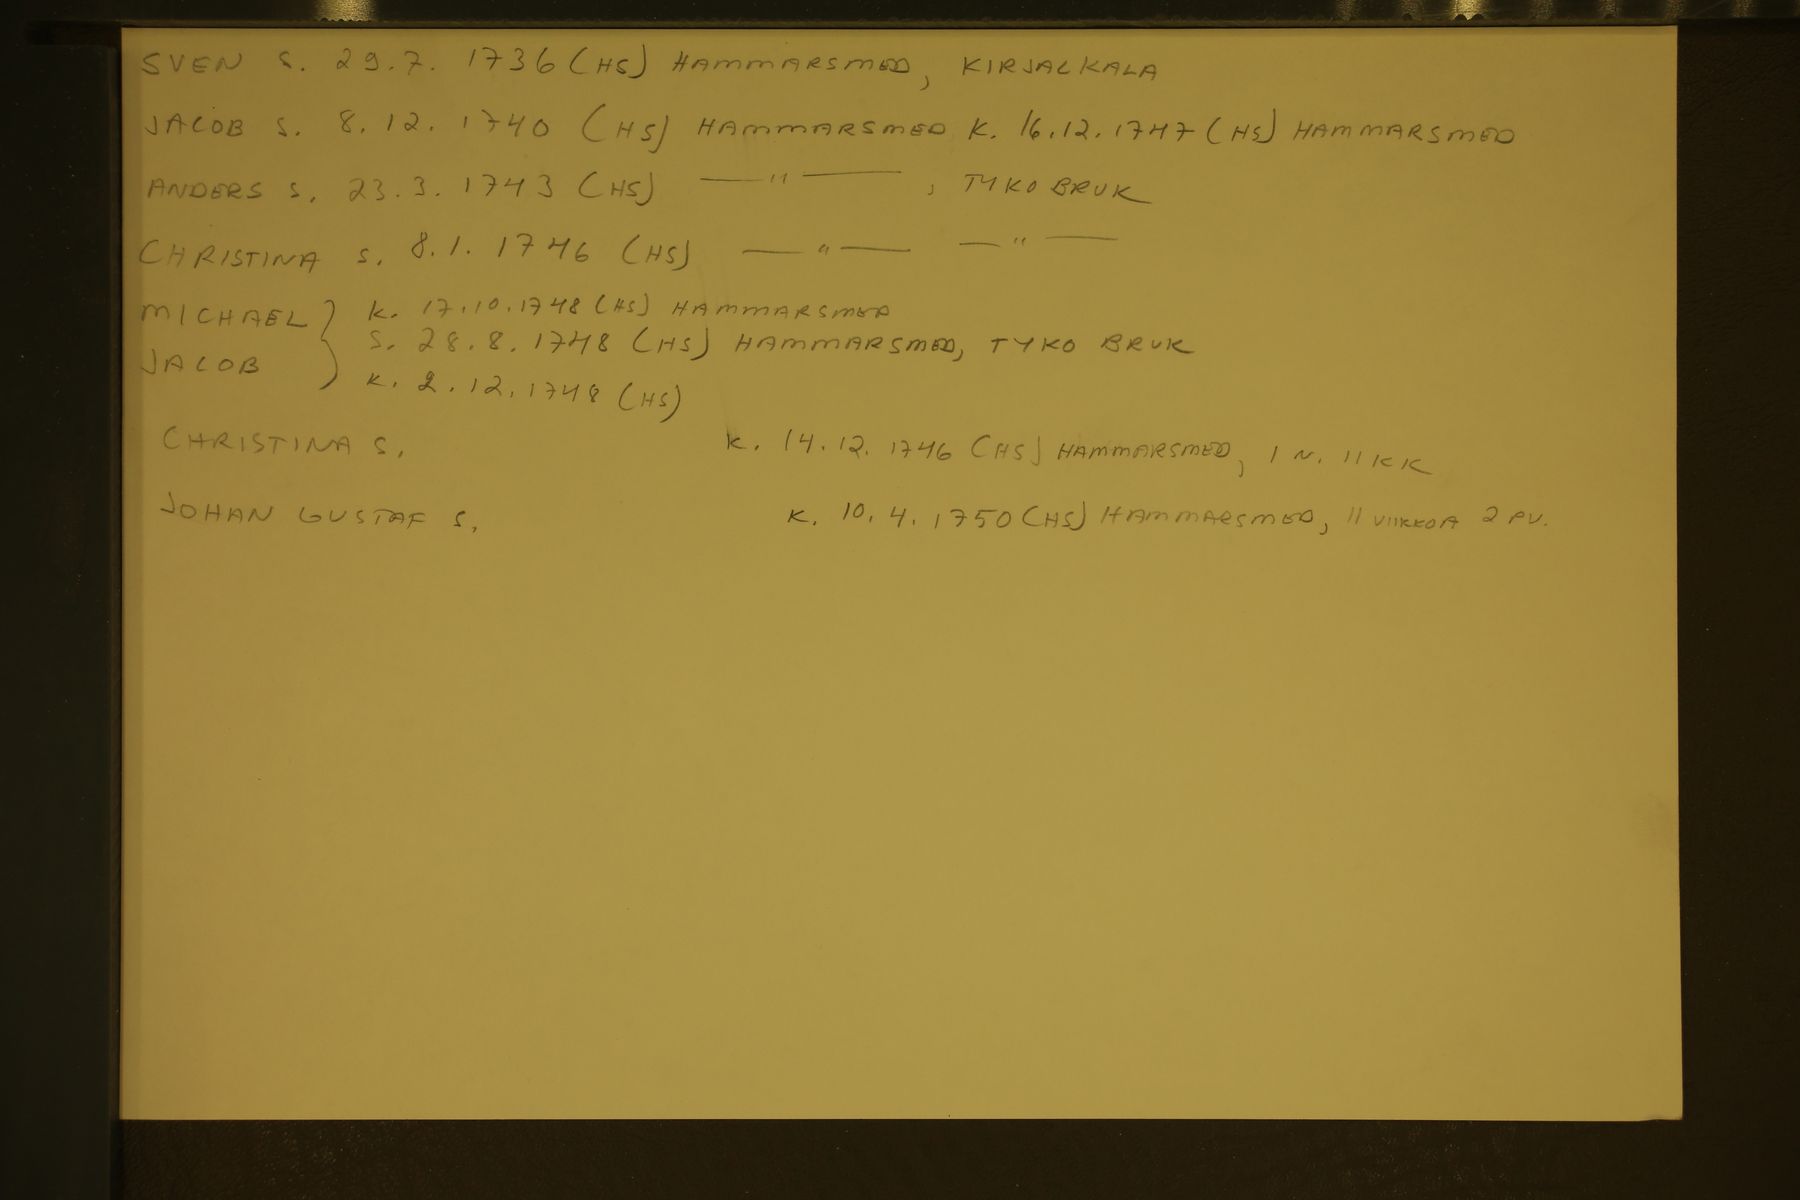 SVEN S. 29.7. 1736 (HS) HAMMARSMED, KIRJALKALA
JACOB S. 8.12. 1740 (HS) HAMMARSMED K. 16.12.1747 (HS) HAMMARSMED
ANDERS S. 23.3. 1743 (HS) —"— , TYKO BRUK
CHRISTINA S. 8.1. 1746 (HS) —"— —"—
MICHAEL } K. 17.10.1748 (HS) HAMMARSMED
S. 28.8. 1748 (HS) HAMMARSMED, TYKO BRUK
JACOB } K. 2.12.1748 (HS)
CHRISTINA S. K. 14.12. 1746 (HS) HAMMARSMED, 1 N. 11 KK
JOHAN GUSTAF S. K. 10.4.1750 (HS) HAMMARSMED, 11 VIIKKOA 2 PV.